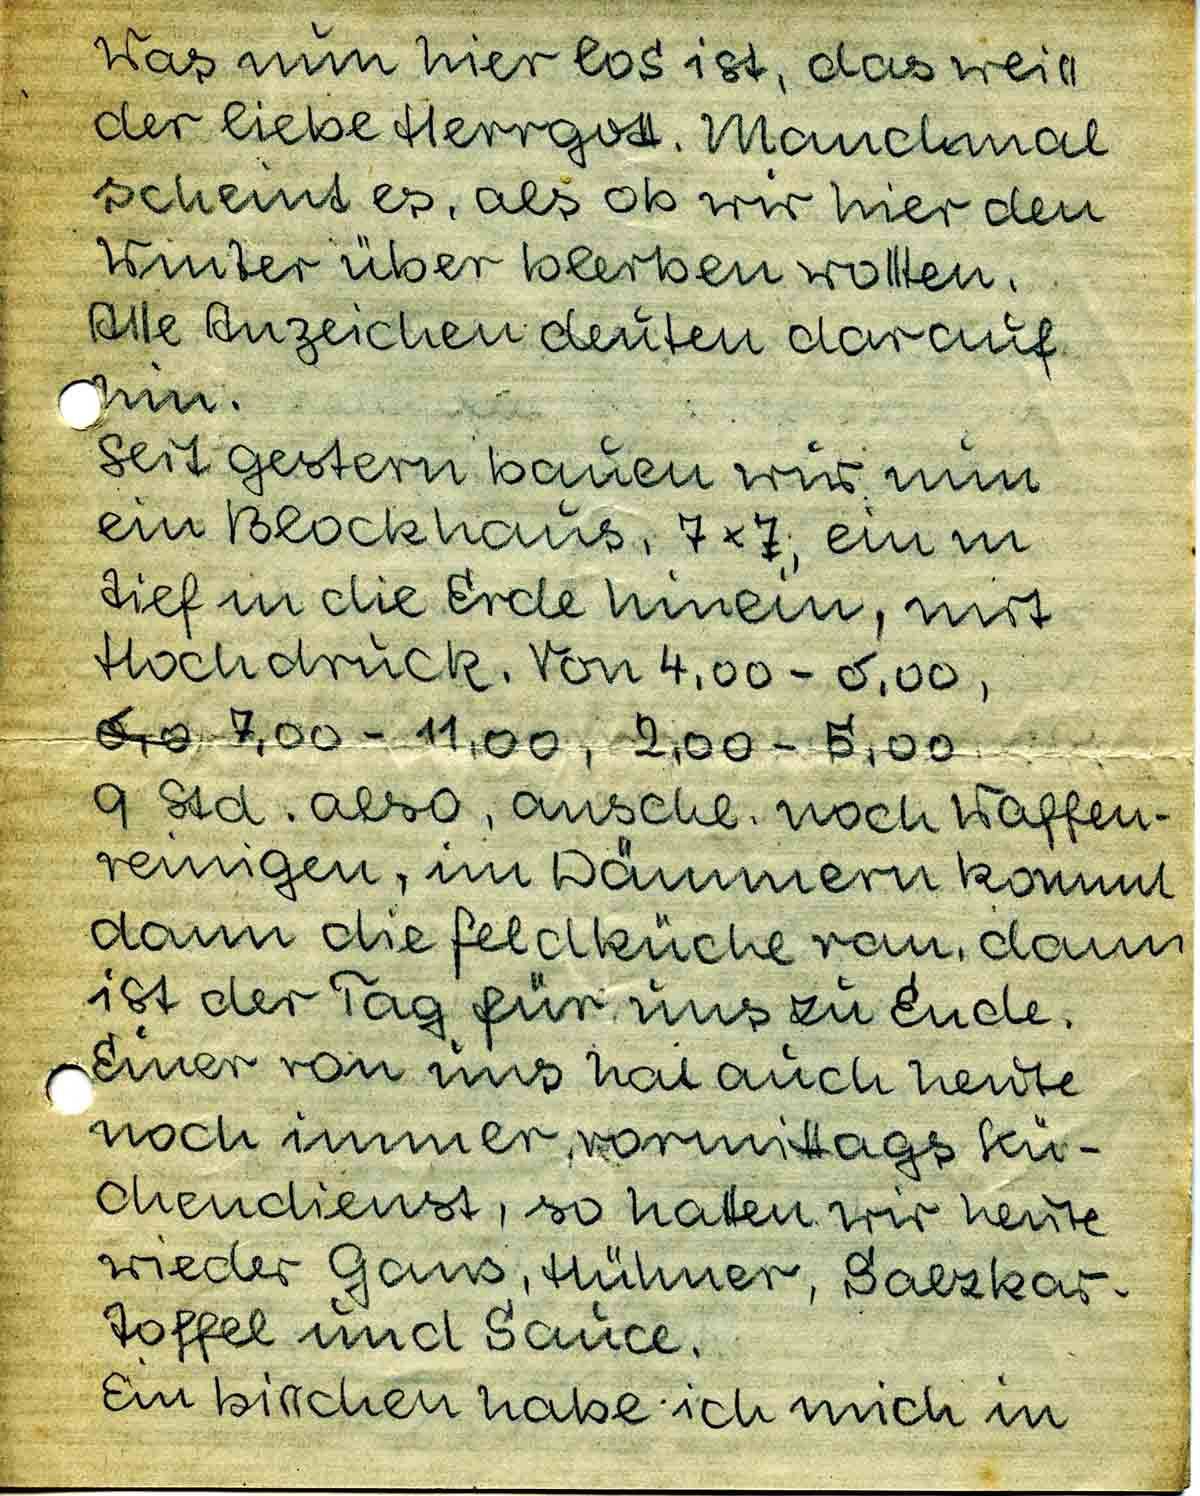 Was nun hier los ist, das weiß
der liebe Herrgott. Manchmal
scheint es, als ob wir hier den
Winter über bleiben wollten.
Alle Anzeichen deuten darauf
hin.
Seit gestern bauen wir nun
ein Blockhaus, 7x7, ein m
tief in die Erde hinein, mit
Hochdruck. Von 4,00 - 6,00,
6,0 7,00 - 11,00, 2,00 - 5,00
9 Std. also, anschl. noch Waffen-
reinigen, im Dämmern kommt
dann die Feldküche ran, dann
ist der Tag für uns zu Ende.
Einer von uns hat auch heute
noch immer, vormittags Kü-
chendienst, so hatten wir heute
wieder Gans, Hühner, Salzkar-
toffel und Sauce.
Ein bisschen habe ich mich in